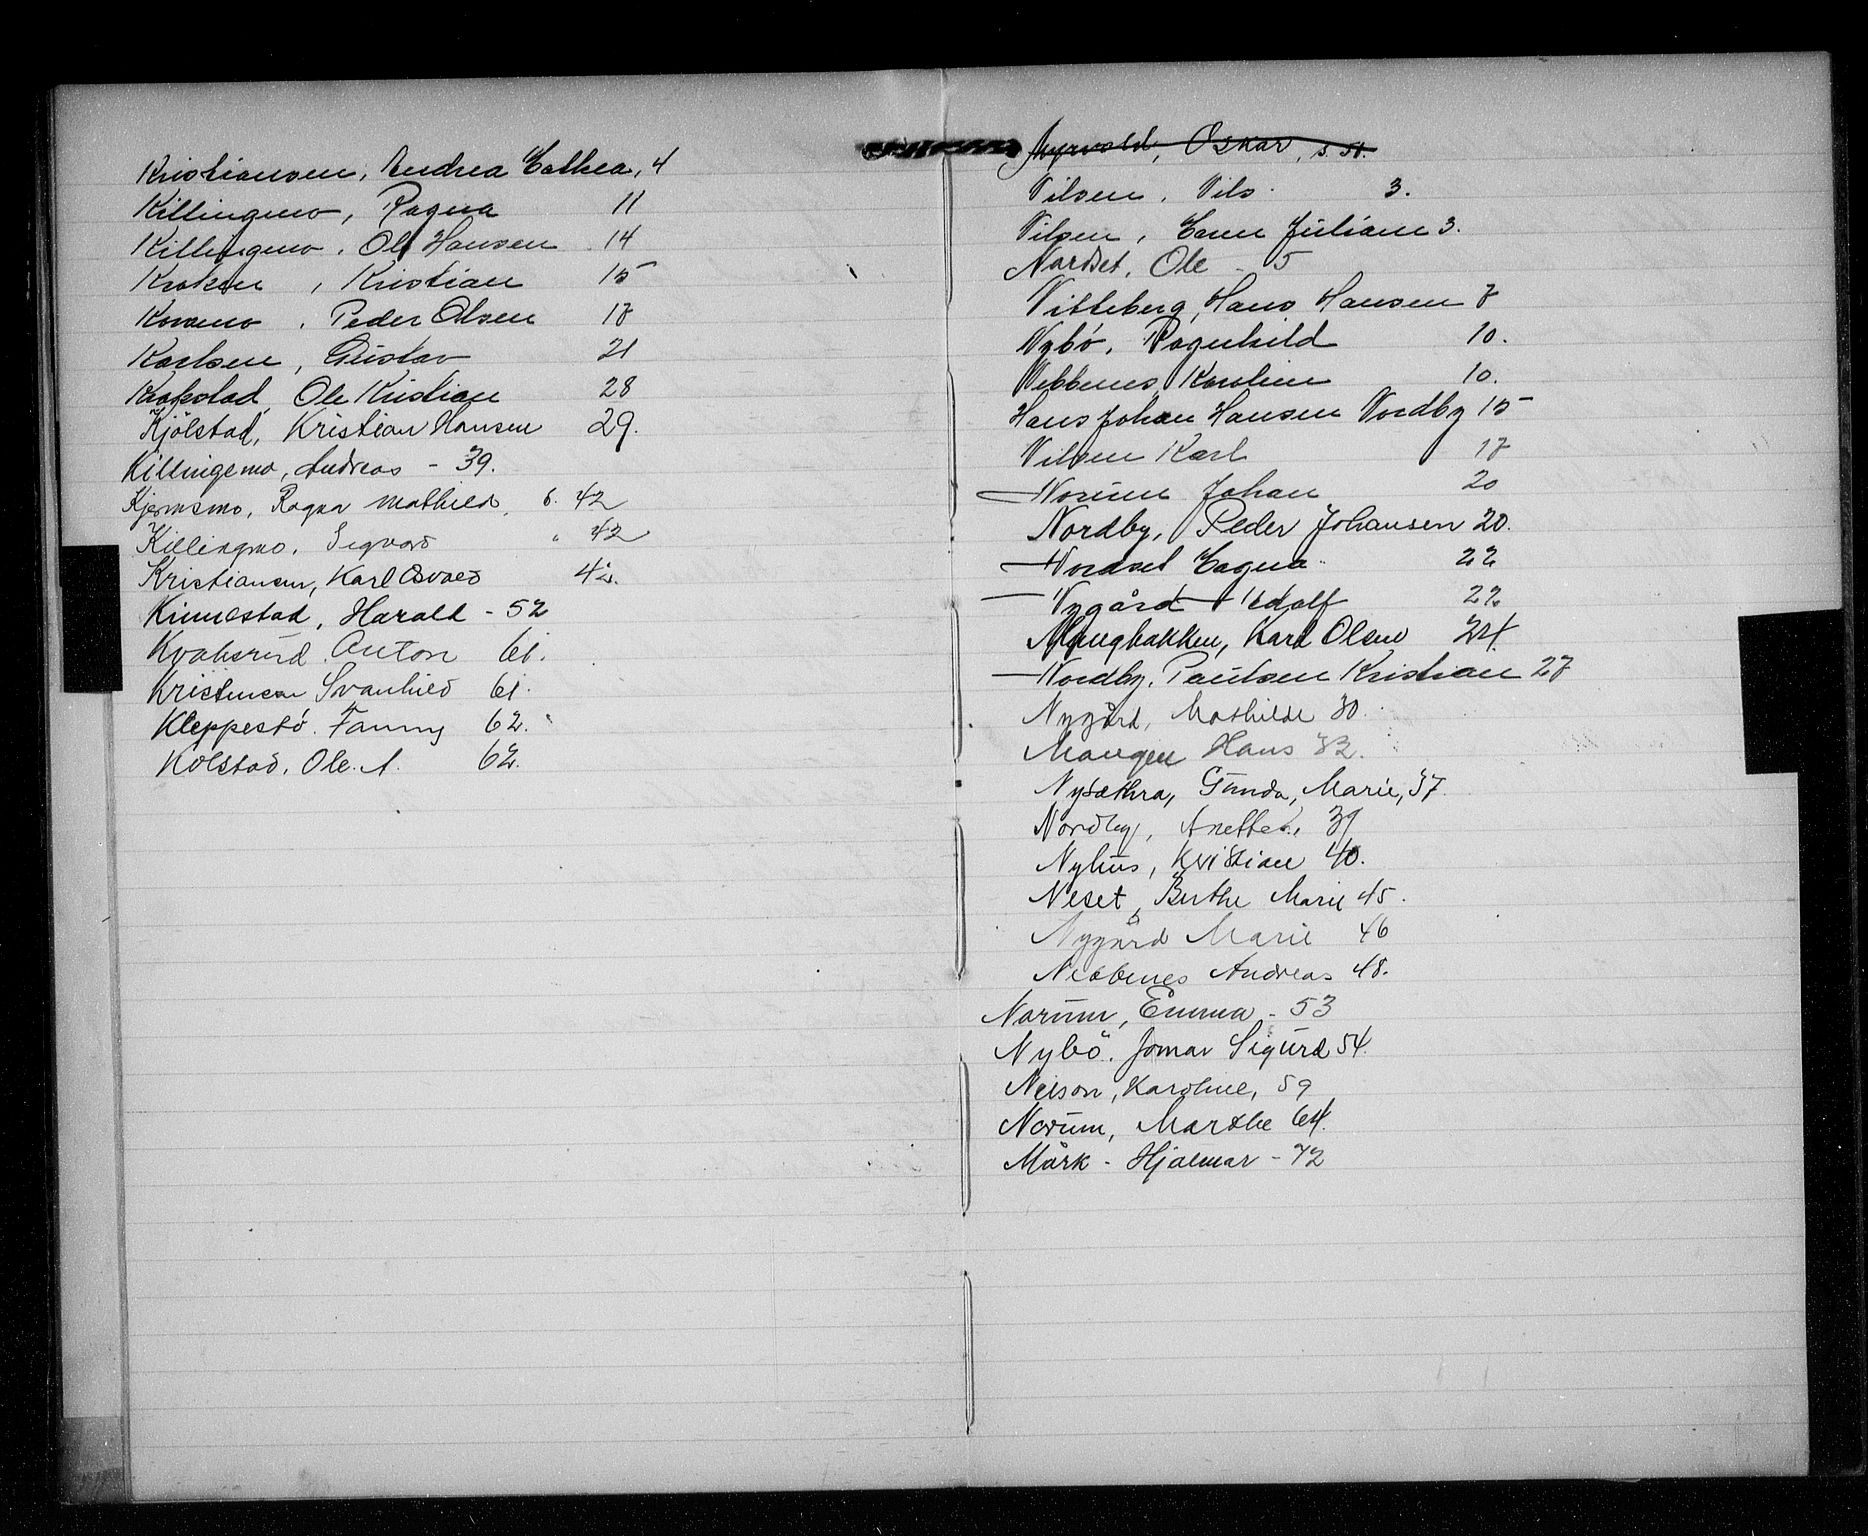 Kristiansen, Andrea Cathea, 4
Killingmo, Ragna 11
Killingmo, Ole Hansen 14
Kroken, Kristian 15
Kovsmo, Peder Olsen 18
Karlsen, Gustav 21
Krokstad, Ole Kristian 28
Kjölstad, Kristian Hansen 29.
Killingemo, Andreas - 39.
Kjernsmo, Ragna Mathild, s. 42
Killingmo, Sigvard " 42
Kristiansen, Karl Osvald 42.
Kinnestad, Harald - 52
Kvaksrud. Anton 61.
Kristensen Svanhild 61.
Kleppestö. Fanny 62.
Kolstad, Ole. A. 62.
Myrvold, Oskar, s. 51.
Nilsen, Nils. 3.
Nilsen, Juliane 3.
Nordset, Ole - 5
Nitteberg, Hans Hansen 7
Nybö, Ragnhild 10.
Nebbenes, Karoline 10.
Hans Johan Hansen Nordby 15
Nilsen Karl 17
Norum Johan 20
Nordby, Peder Johansen 20.
Nordset Magna 22
Nygård Adolf 22
Mangbakken, Karl Olsen 24.
Nordby, Paulsen Kristian 27
Nygård, Mathilde 30.
Mangen Hans 32.
Nysæthra, Gunda, Marie, 37.
Nordby, Anette. 39
Nyhus, Kristian 40.
Neset, Berthe Marie 45.
Nygård Marie 46
Nebbenes Andreas 48.
Norum, Emma - 53
Nybö. Jomar Sigurd 54.
Nelson, Karoline, 59
Norum, Marthe 64.
Mårk - Hjalmar - 72